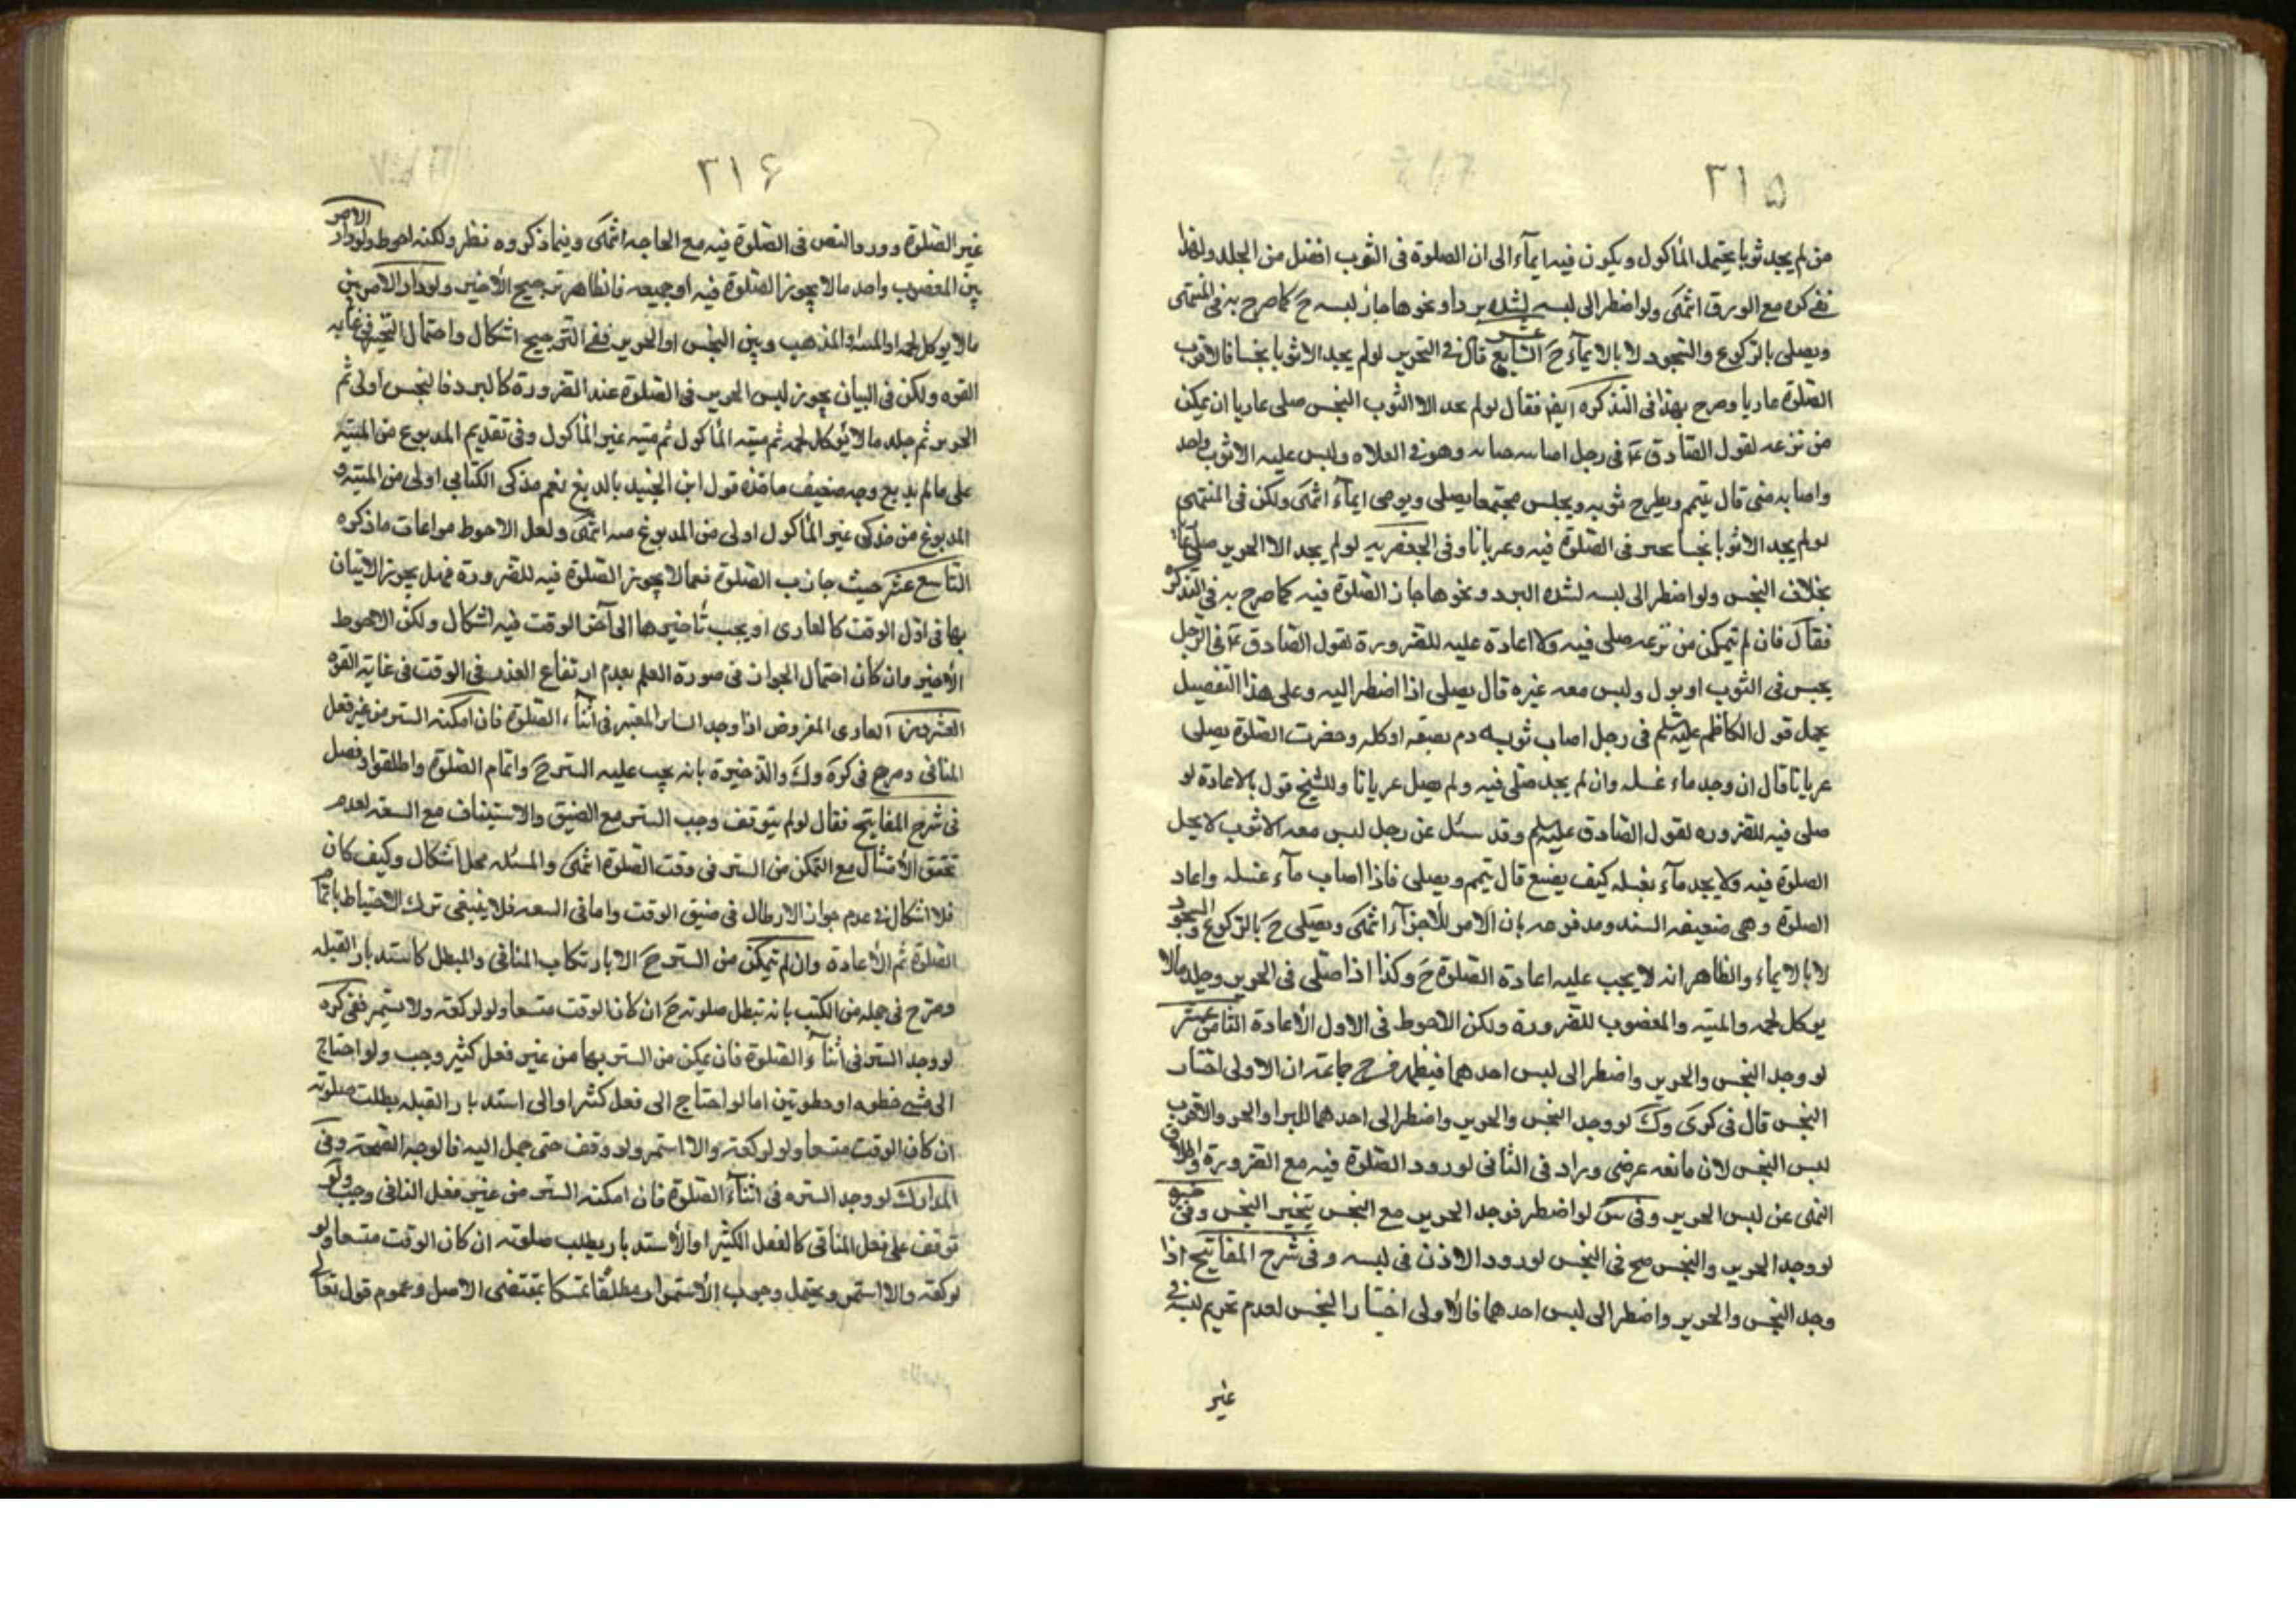 ٣١۵
من لم يجد ثوبا يحتمل المأكول ويكون فيه ايمآء الى ان الصلوة فى الثوب افضل من الجلد ولهذا
ذكره مع الورق انتهى ولو اضطر الى لبسه لشدة برد او نحوها جاز لبسه ح كما صرح به فى المنتهى
ويصلى بالركوع والسجود لا بالايمآء ح السابع عشر قال فى التحرير لو لم يجد الا ثوبا نجسا فالاقرب
الصلوة عاريا وصرح بهذا فى التذكره ايضا فقال لو لم يجد الا الثوب النجس صلى عاريا ان يمكن
من نزعه لقول الصادق ع فى رجل اصابته جنابه وهو فى الفلاه وليس عليه الا ثوب واحد
واصابه منى قال يتيمم ويطرح ثوبه ويجلس مجتمعا يصلى ويومى ايمآء انتهى ولكن فى المنتهى
لو لم يجد الا ثوبا نجسا تخير فى الصلوة فيه وعريانا وفى الجعفريه لو لم يجد الا الحرير صلى عاريا
بخلاف النجس ولو اضطر الى لبسه لشدة البرد ونحوها جاز الصلوة فيه كما صرح به فى التذكره
فقال فان لم يتمكن من نزعه صلى فيه ولا اعادة عليه للضرورة لقول الصادق ع فى الرجل
يجنب فى الثوب او بول وليس معه غيره قال يصلى اذا اضطر اليه وعلى هذا التفصيل
يحمل قول الكاظم عليه السلم فى رجل اصاب ثوبه دم نصفه او كله وحضرت الصلوة يصلى
عريانا قال ان وجد ماء غسله وان لم يجد صلى فيه ولم يصل عريانا وللشيخ قول بالاعادة لو
صلى فيه للضروره لقول الصادق عليه السلم وقد سئل عن رجل ليس معه الا ثوب لا يحل
الصلوة فيه ولا يجد مآء يغسله كيف يصنع قال يتيمم ويصلى فاذا اصاب مآء غسله واعاد
الصلوة وهى ضعيفه السند ومدفوعه بان الامر للاجزآء انتهى ويصلى ح بالركوع والسجود
لا بالايماء والظاهر انه لا يجب عليه اعادة الصلوة ح وكذا اذا صلى فى الحرير وجلد مالا
يوكل لحمه والميته والمغصوب للضرورة ولكن الاحوط فى الاول الأعادة الثامن عشر
لو وجد النجس والحرير واضطر الى لبس احدهما فيظهر من جماعة ان الاولى اختيار
النجس قال فى كرى وك لو وجد النجس والحرير واضطر الى احدهما للبرد او الحر والاقرب
لبس النجس لان مانعه عرضى وزاد فى الثانى لورود الصلوة فيه مع الضرورة واطلاق
النهى عن لبس الحرير وفى س لو اضطر فوجد الحرير مع النجس يتخير النجس وفى
لو وجد الحرير والنجس صح فى النجس لورود الاذن فى لبسه وفى شرح المفاتيح اذا
وجد النجس والحرير واضطر الى لبس احدهما فالأولى اختيار النجس لعدم تحريم لبسه فى
غير
٣١۶
غير الصلوة وورود النص فى الصلوة فيه مع الحاجه انتهى وفيما ذكروه نظر ولكنه احوط ولو دار الامر
بين المغصوب واحد ما لا يجوز الصلوة فيه او جميعه فالظاهر ترجيح الأخير ولو دار الامر بين
ما لا يوكل لحمه او الميتة والمذهب وبين النجس او الحرير ففى الترجيح اشكال واحتمال التخيير فى غايه
القوه ولكن فى البيان يجوز لبس الحرير فى الصلوة عند الضرورة كالبرد فالنجس اولى ثم
الحرير ثم جلد ما لا يؤكل لحمه ثم ميته المأكول ثم ميته غير المأكول وفى تقديم المدبوغ من الميته
على ما لم يدبغ وجه ضعيف ماخذه قول ابن الجنيد بالدبغ نعم مذكى الكتابى اولى من الميته و
المدبوغ من مذكى غير المأكول اولى من المدبوغ منه انتهى ولعل الاحوط مراعات ما ذكره
التاسع عشر حيث جازت الصلوة فيما لا يجوز الصلوة فيه للضرورة فهل يجوز الاتيان
بها فى اول الوقت كالعارى او يجب تأخيرها الى آخر الوقت فيه اشكال ولكن الاحوط
الأخير وان كان احتمال الجواز فى صورة العلم بعدم ارتفاع العذر فى الوقت فى غاية القوه
العشرون العارى المفروض اذا وجد الساتر المعتبر فى اثنآء الصلوة فان امكنه الستر من غير فعل
المنافى وصرح فى كره وك والذخيرة بانه يجب عليه الستر ح واتمام الصلوة واطلقوا وفصل
فى شرح المفاتيح فقال لو لم يتوقف وجب الستر مع الضيق والاستيناف مع السعه لعدم
تحقق الأمتثال مع التمكن من الستر فى وقت الصلوة انتهى والمسئله محل اشكال وكيف كان
فلا اشكال فى عدم جواز الابطال فى ضيق الوقت واما فى السعه فلا ينبغى ترك الاحتياط باتمام
الصلوة ثم الأعادة وان لم يتمكن من الستر ح الا بارتكاب المنافى والمبطل كاستدبار القبله
وصرح فى جمله من الكتب بانه تبطل صلوته ح ان كان الوقت متسعا ولو لركعه ولا يستمر ففى كره
لو وجد الستر فى اثنآء الصلوة فان يمكن من الستر بها من غير فعل كثير وجب ولو احتاج
الى مشى خطوه او خطوتين اما لو احتاج الى فعل كثير او الى استدبار القبله بطلت صلوته
ان كان الوقت متسعا ولو لركعة والا استمر ولو وقف حتى حمل اليه فالوجه الصحة وفى
المدارك لو وجد الستره فى اثنآء الصلوة فان امكنه الستر من غير فعل المنافى وجب ولو
توقف على فعل المنافى كالفعل الكثير او الأستدبار يطلب صلوته ان كان الوقت متسعا ولو
لركعة والا استمر ويحتمل وجوب الأستمرار مطلقا تمسكا بمقتضى الاصل وعموم قول تعالى